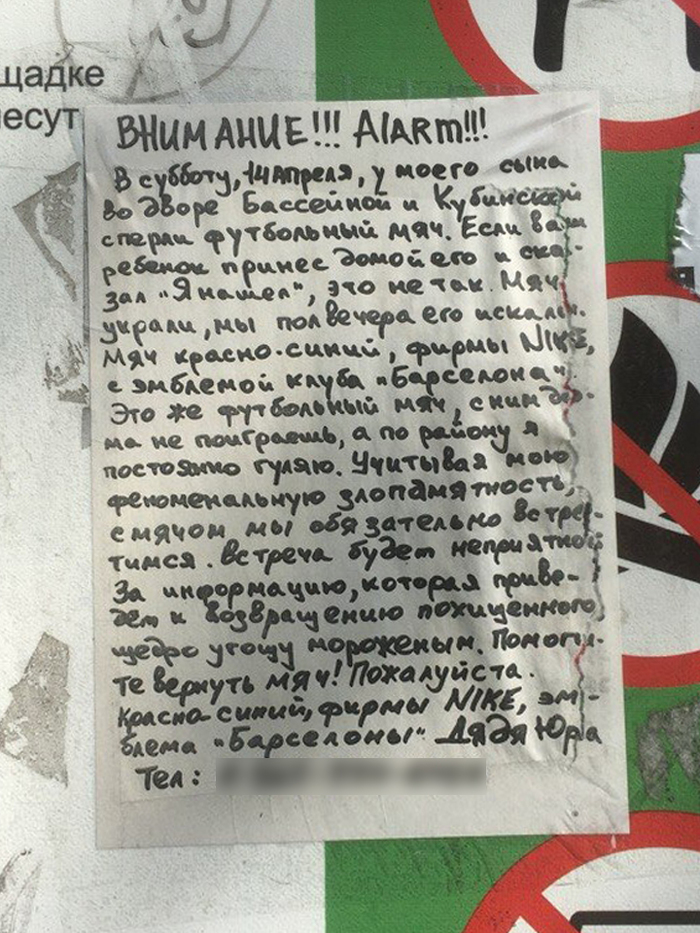 щадке
несут
ВНИМАНИЕ!!! Alarm!!!
В субботу, 14 апреля, у моего сына
во дворе Бассейной и Кубинской
сперли футбольный мяч. Если ваш
ребенок принес домой его и ска-
зал "Я нашел", это не так. Мяч
украли, мы пол вечера его искали.
Мяч красно-синий, фирмы NIKE,
с эмблемой клуба "Барселона".
Это же футбольный мяч, с ним до-
ма не поиграешь, а по району я
постоянно гуляю. Учитывая мою
феноменальную злопамятность,
с мячом мы обязательно встре-
тимся. Встреча будет неприятной
За информацию, которая приве-
дет к возвращению похищенного,
щедро угощу мороженым. Помоги-
те вернуть мяч! Пожалуйста.
Красно синий, фирмы NIKE, эм-
блема "Барселоны" Дядя Юра
Тел: